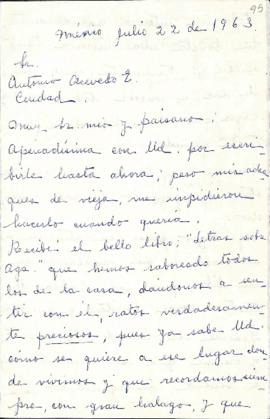 95
México Julio 22 de 1963.
Sr.
Antonio Acevedo E.
Ciudad
Muy Sr. mio y paisano:
Apenadísima con Ud. por escri-
birle hasta ahora; pero mis acha
ques de vieja, me impidieron
hacerlo cuando quería.
Recibí el bello libro; "Letras sobre
Aga." que hemos saboreado todos
los de la casa, dándonos a sen-
tir con él, ratos verdaderamen-
te preciosos, pues ya sabe Ud.
cómo se quiere a ese lugar don-
de vivimos y que recordamos siem
pre, con gran halago, y que